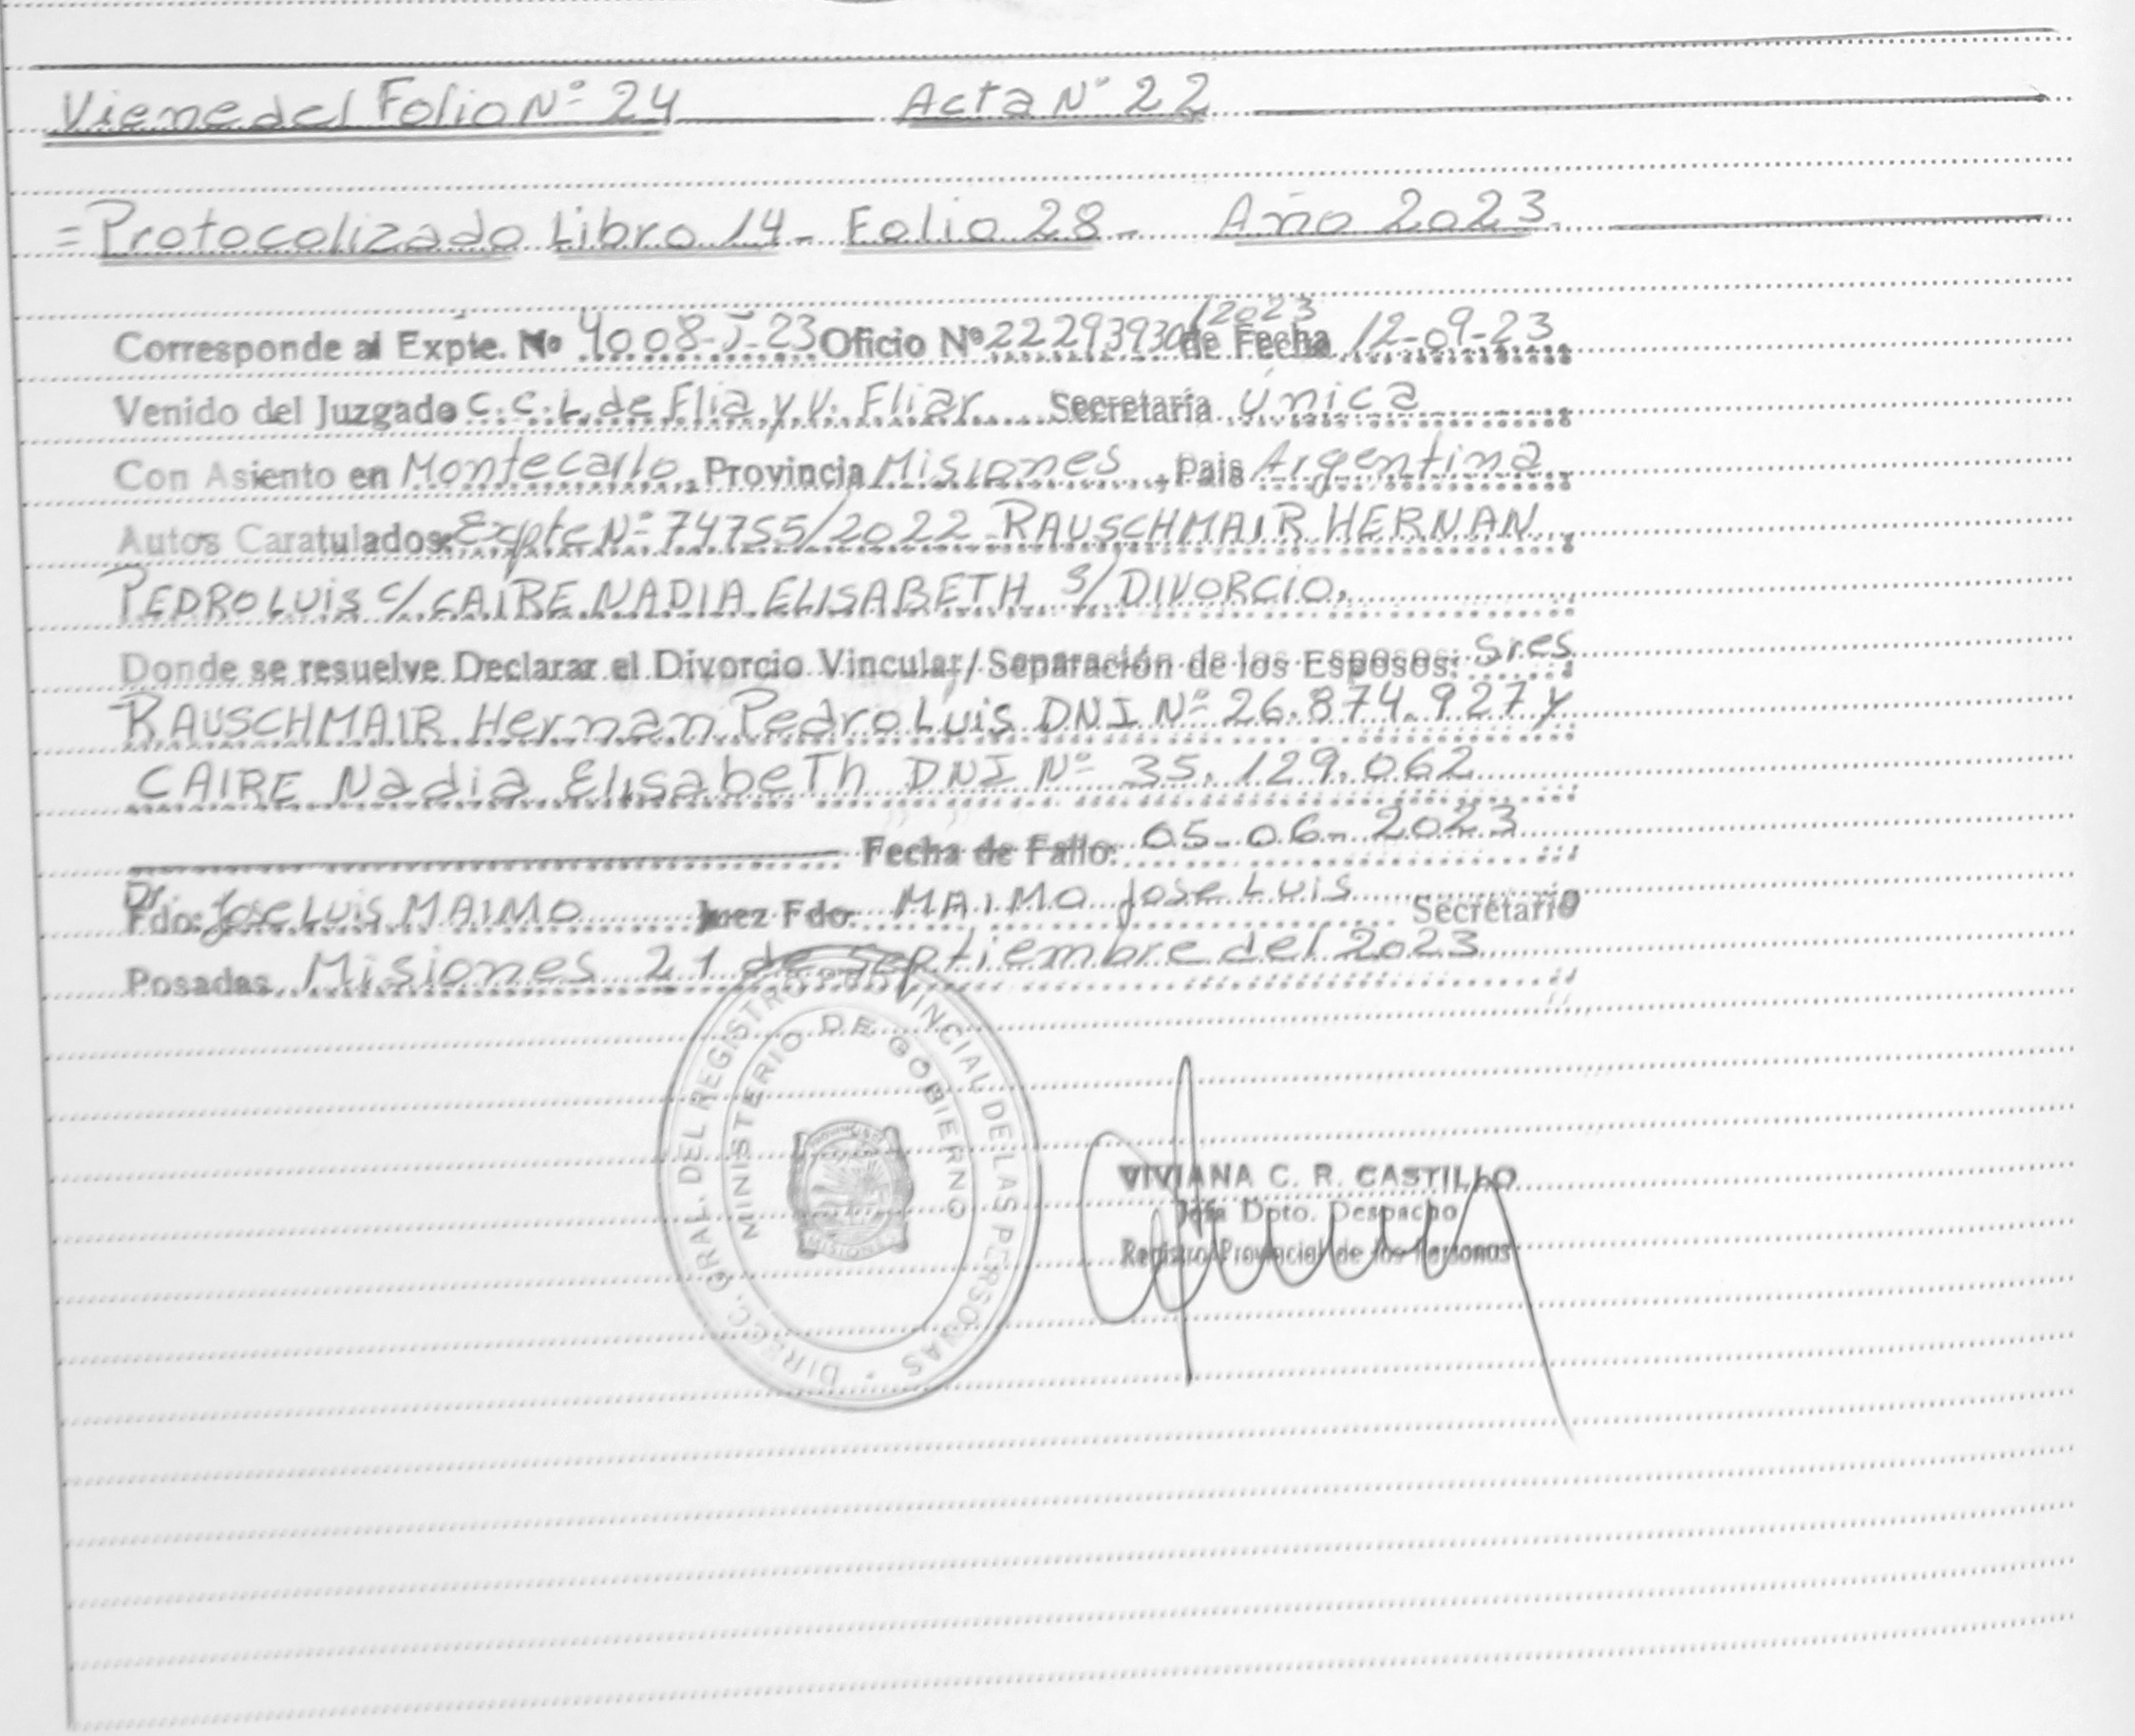 Viene del Folio Nº 24 Acta Nº 22
= Protocolizado Libro 14 - Folio 28 - Año 2023.
Corresponde al Expte. Nº 4008-J-23 Oficio Nº 22293930/2023 de Fecha 12-09-23
Venido del Juzgado C.C.L. de Flia y V. Fliar Secretaría Única
Con Asiento en Montecarlo, Provincia Misiones, Pais Argentina
Autos Caratulados: Expte Nº 74755/2022 RAUSCHMAIR HERNAN
PEDRO LUIS C/ CAIRE NADIA ELISABETH S/ DIVORCIO.
Donde se resuelve Declarar el Divorcio Vincular/Separación de los Esposos: Sres
RAUSCHMAIR Hernan Pedro Luis DNI Nº 26.874.927 y
CAIRE Nadia Elisabeth DNI Nº 35.129.062
Fecha de Fallo: 05-06-2023
Fdo: Dr. Jose Luis MAIMO Juez Fdo: MAIMO Jose Luis Secretario
Posadas, Misiones 21 de septiembre del 2023
DIREC. GRAL. DEL REGISTRO PROVINCIAL DE LAS PERSONAS
MINISTERIO DE GOBIERNO
MISIONES
VIVIANA C. R. CASTILLO
Jefa Dpto. Despacho
Registro Provincial de las Personas